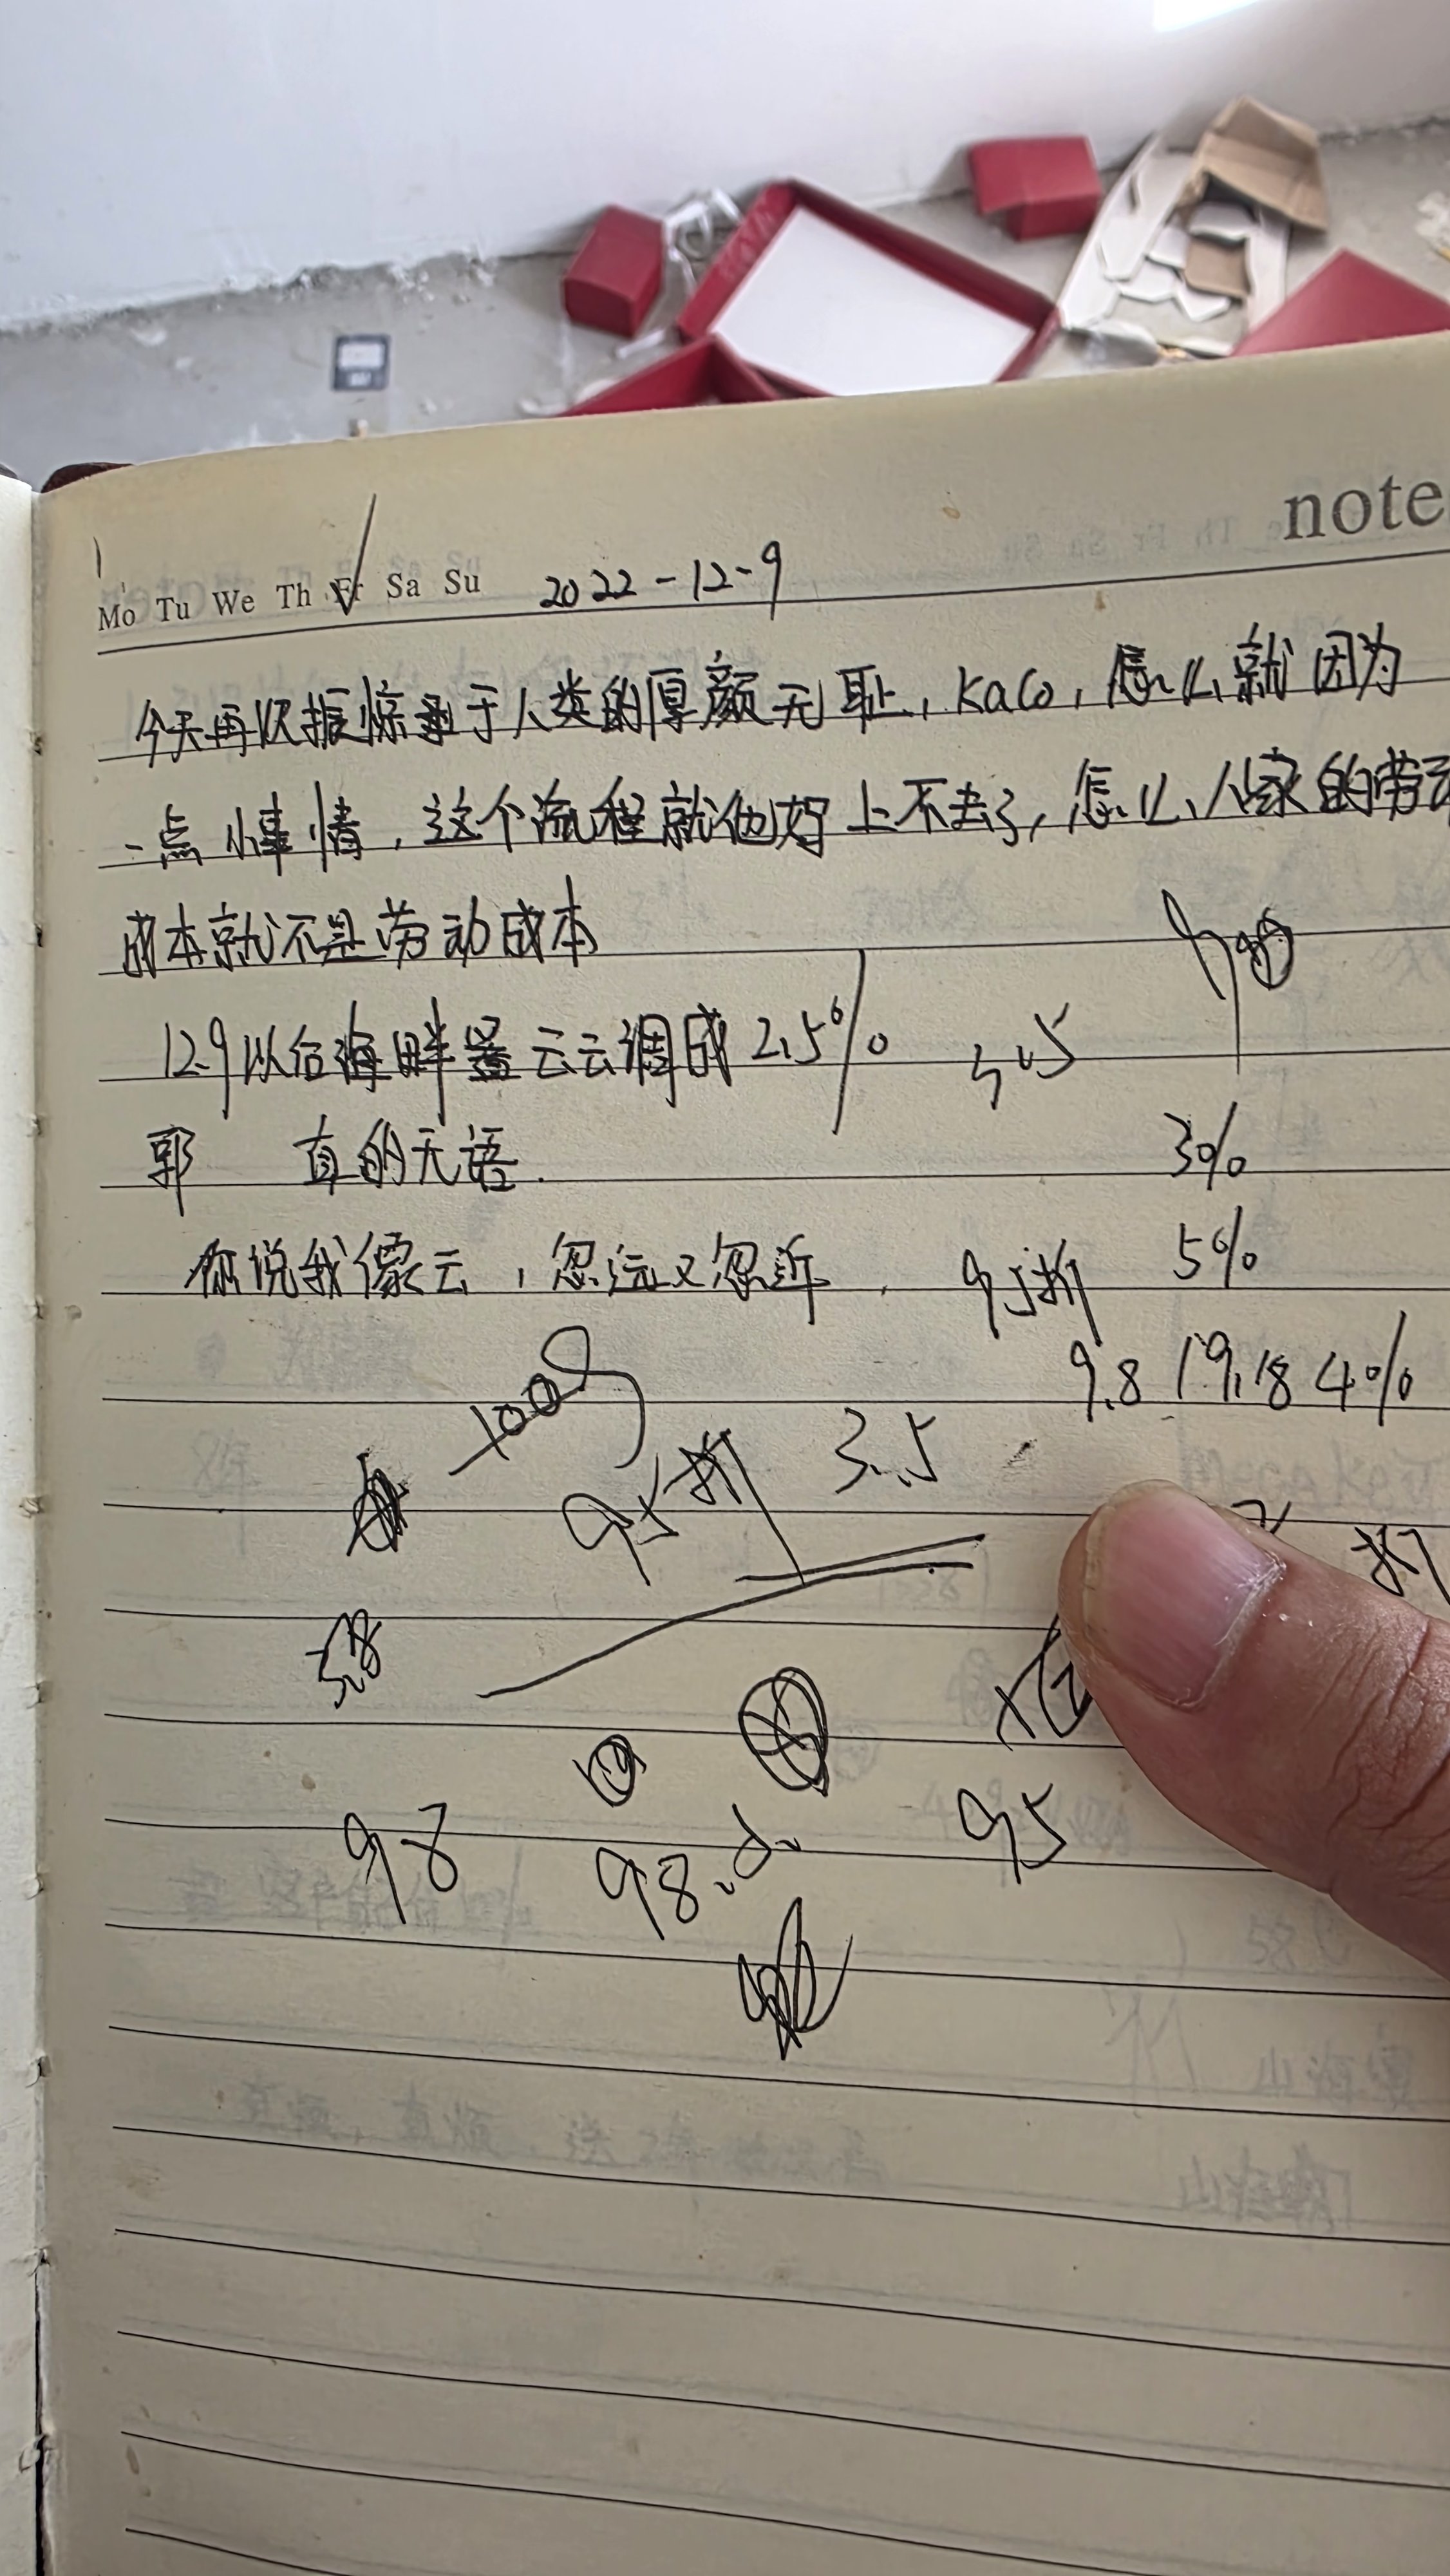 note
Mo Tu We Th Fr Sa Su 2022-12-9
今天再次振惊于人类的厚颜无耻，KaCo，怎么就因为
一点小事情，这个流程就他妈上不去了，怎么人家的劳动
成本就不是劳动成本
12.9以后海畔云云调成2.5%
3%
郭 真的无语.
你说我像云，忽远又忽近 95折 5%
9.8 19.18 4%
100
95折 3.5
折
98 98. 95